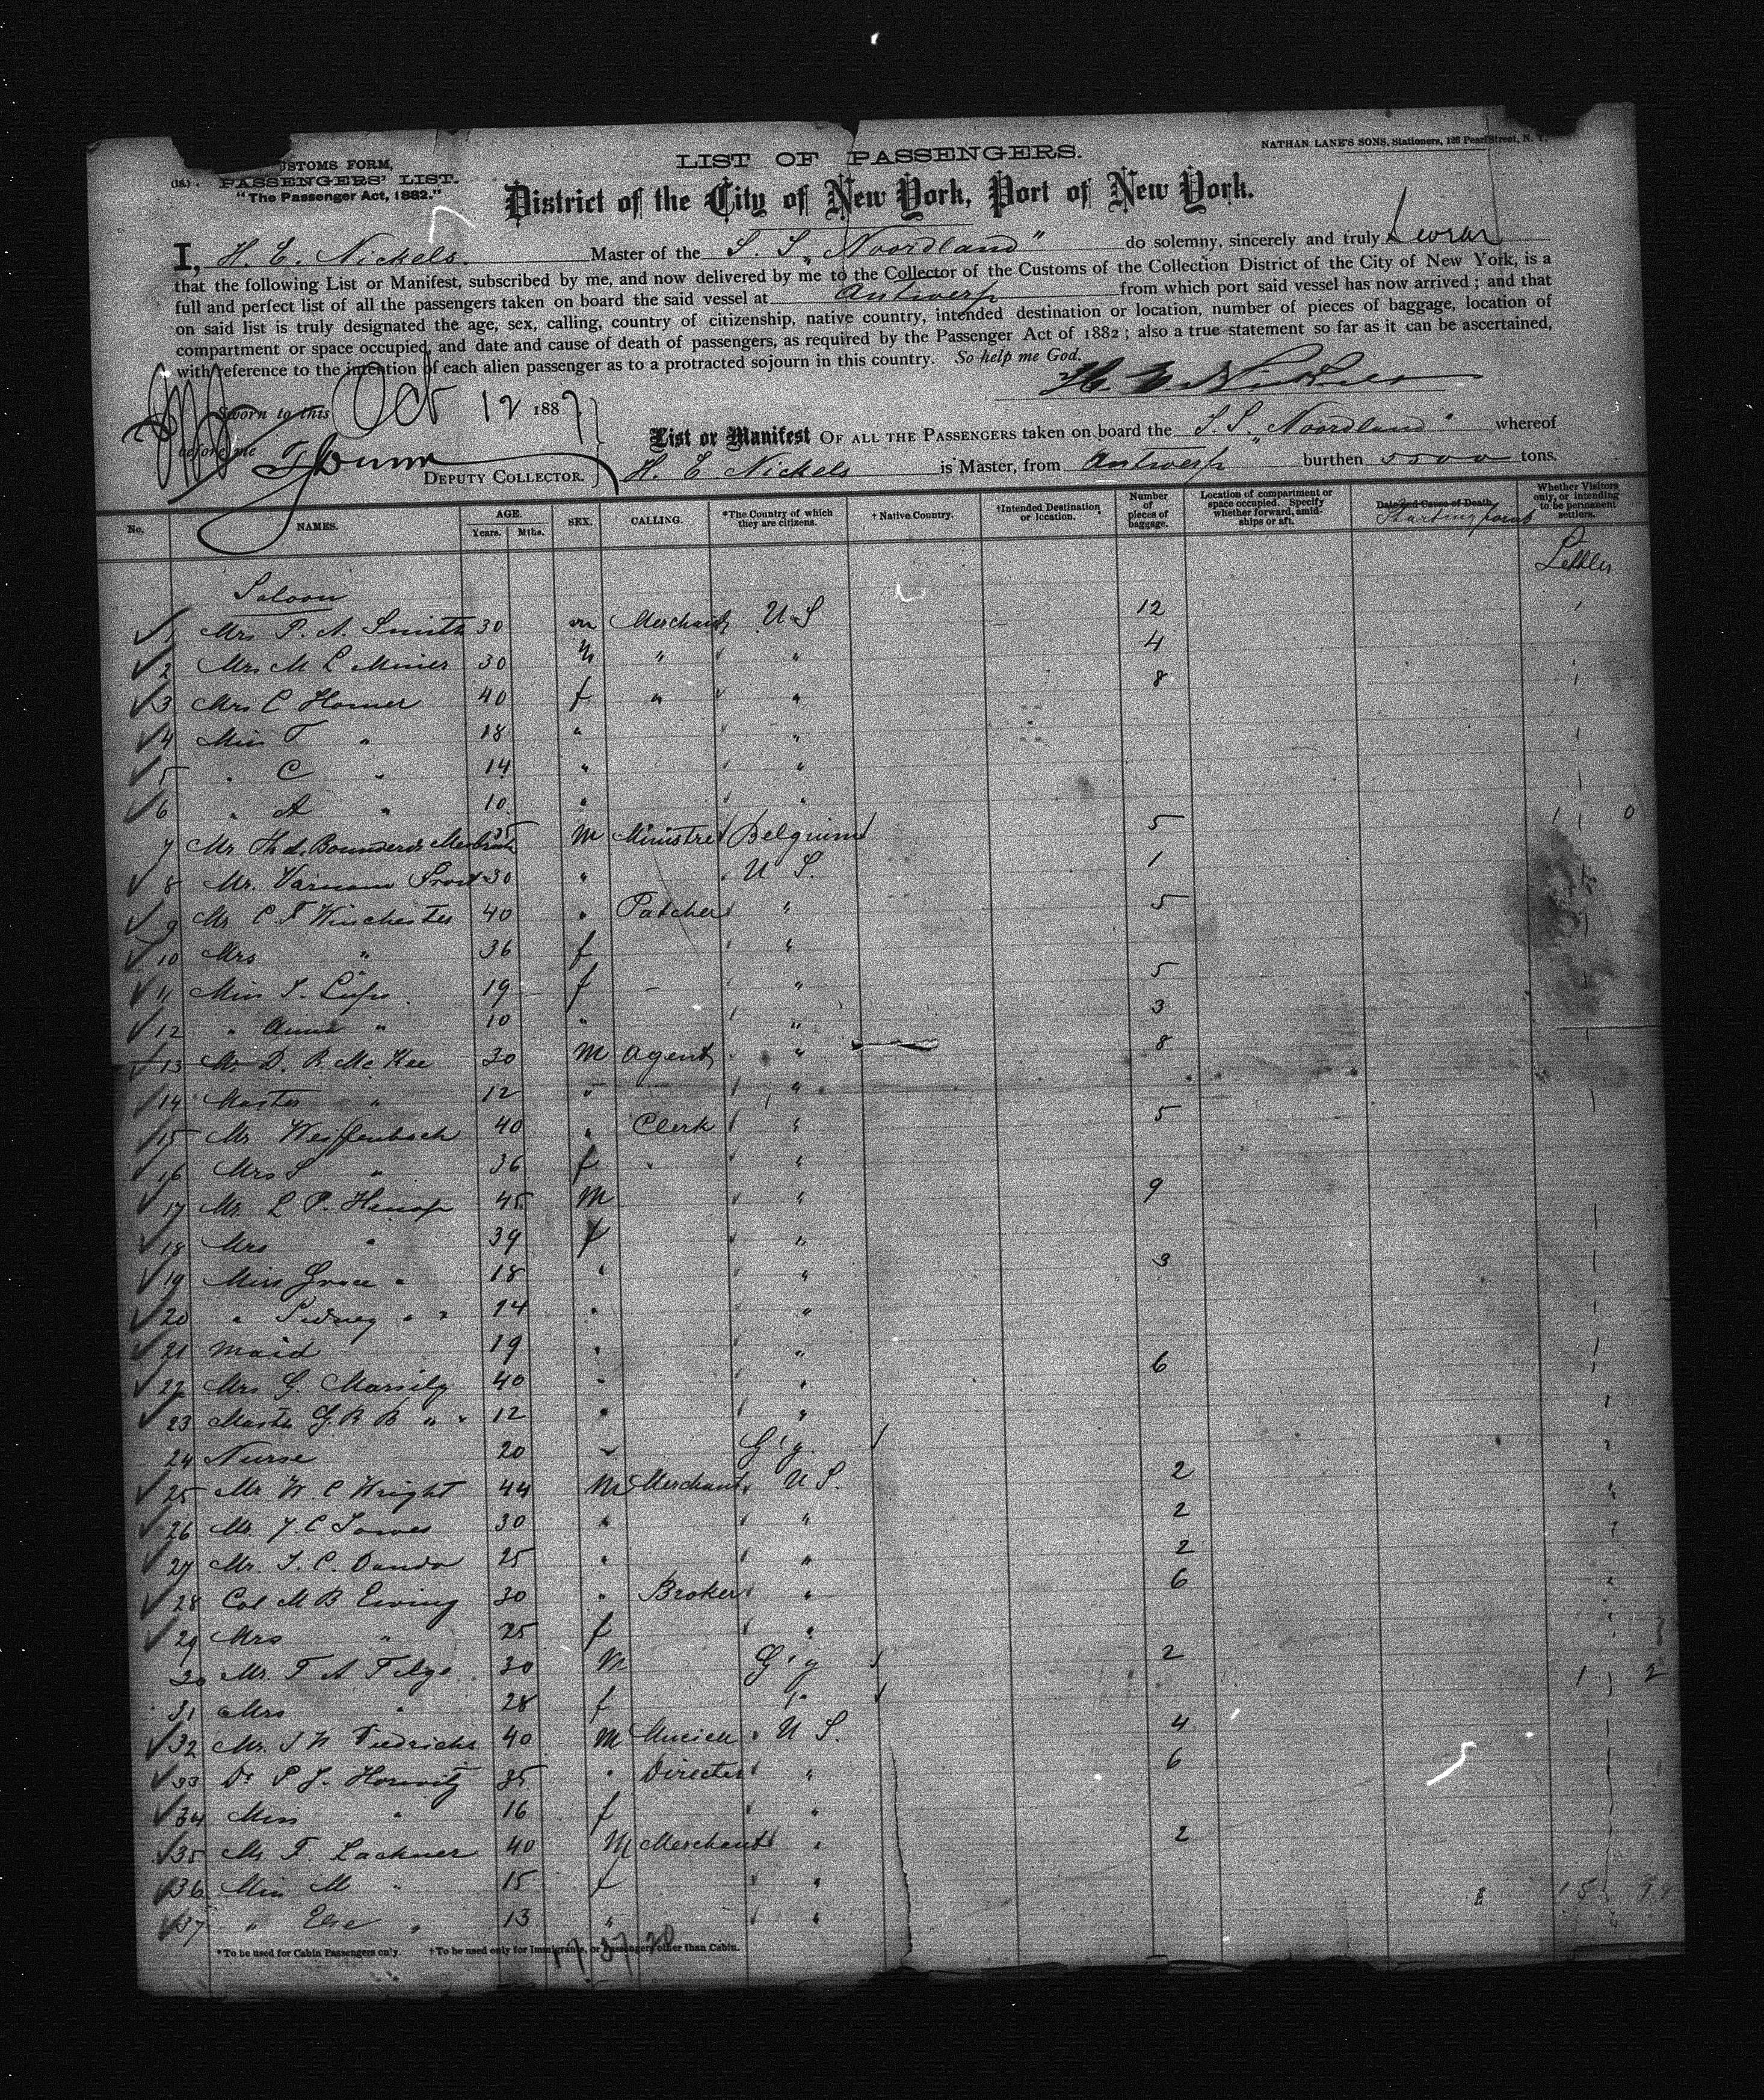 CUSTOMS FORM,
PASSENGERS' LIST.
"The Passenger Act, 1882."
NATHAN LANE'S SONS, Stationers, 126 Pearl Street, N. Y.
LIST OF PASSENGERS.
District of the City of New York, Port of New York.
I, H. E. Nickels. Master of the S. S. „Noordland" do solemny, sincerely and truly swear
that the following List or Manifest, subscribed by me, and now delivered by me to the Collector of the Customs of the Collection District of the City of New York, is a
full and perfect list of all the passengers taken on board the said vessel at Antwerp from which port said vessel has now arrived; and that
on said list is truly designated the age, sex, calling, country of citizenship, native country, intended destination or location, number of pieces of baggage, location of
compartment or space occupied, and date and cause of death of passengers, as required by the Passenger Act of 1882; also a true statement so far as it can be ascertained,
with reference to the intention of each alien passenger as to a protracted sojourn in this country. So help me God.
H. E. Nickels
Sworn to this Oct 12 1887
before me
DEPUTY COLLECTOR.
List or Manifest OF ALL THE PASSENGERS taken on board the S. S. „Noordland" whereof
H. E. Nickels is Master, from Antwerp burthen 5500 tons.
No. NAMES. AGE. Years. Mths. SEX. CALLING. *The Country of which they are citizens. †Native Country. †Intended Destination or location. Number of pieces of baggage. Location of compartment or space occupied. Specify whether forward, amidships or aft. Date and Cause of Death. Starting point Whether Visitors only, or intending to be permanent settlers.
Saloon
1 Mrs P. A. Smith 30 m Merchant U S 12
2 Mrs M L Minier 30 " " 4
3 Mrs C Horner 40 f " " 8
4 Miss T " 18 " "
5 " C " 14 " "
6 " A " 10 " "
7 Mr Th d. M Ministre Belgium 5
8 Mr. Varnum 30 " U S. 1
9 Mr C F Winchester 40 " " 5
10 Mrs " 36 f "
11 Miss S. 19 f - " 5
12 " Anna " 10 " " 3
13 Mr D. B. Mc Kee 30 M Agent " 8
14 Master " 12 " "
15 Mr Weiffenbach 40 " Clerk " 5
16 Mrs S " 36 f " "
17 Mr. L P. 45 M " 9
18 Mrs " 39 f "
19 Miss Grace " 18 " " 3
20 " Sidney " " 14 " "
21 Maid 19 " "
22 Mrs G. Marsily 40 " " 6
23 Master G. B B " " 12 " "
24 Nurse 20 " G'y.
25 Mr W. C Wright 44 M Merchant U S. 2
26 Mr. 30 " " 2
27 Mr. 25 " " 2
28 Col M B Ewing 30 " Broker " 6
29 Mrs " 25 f "
30 Mr. F A 30 M G'y 2
31 Mrs " 28 f "
32 Mr. J W 40 M U S. 4
33 Dr P J. Horwitz 35 " Director " 6
34 Miss " 16 f "
35 Mr F. Lackner 40 M Merchant " 2
36 Miss M " 15 f "
37 " Else " 13 " "
*To be used for Cabin Passengers only. †To be used only for Immigrants, or Passengers other than Cabin.
17 37 20